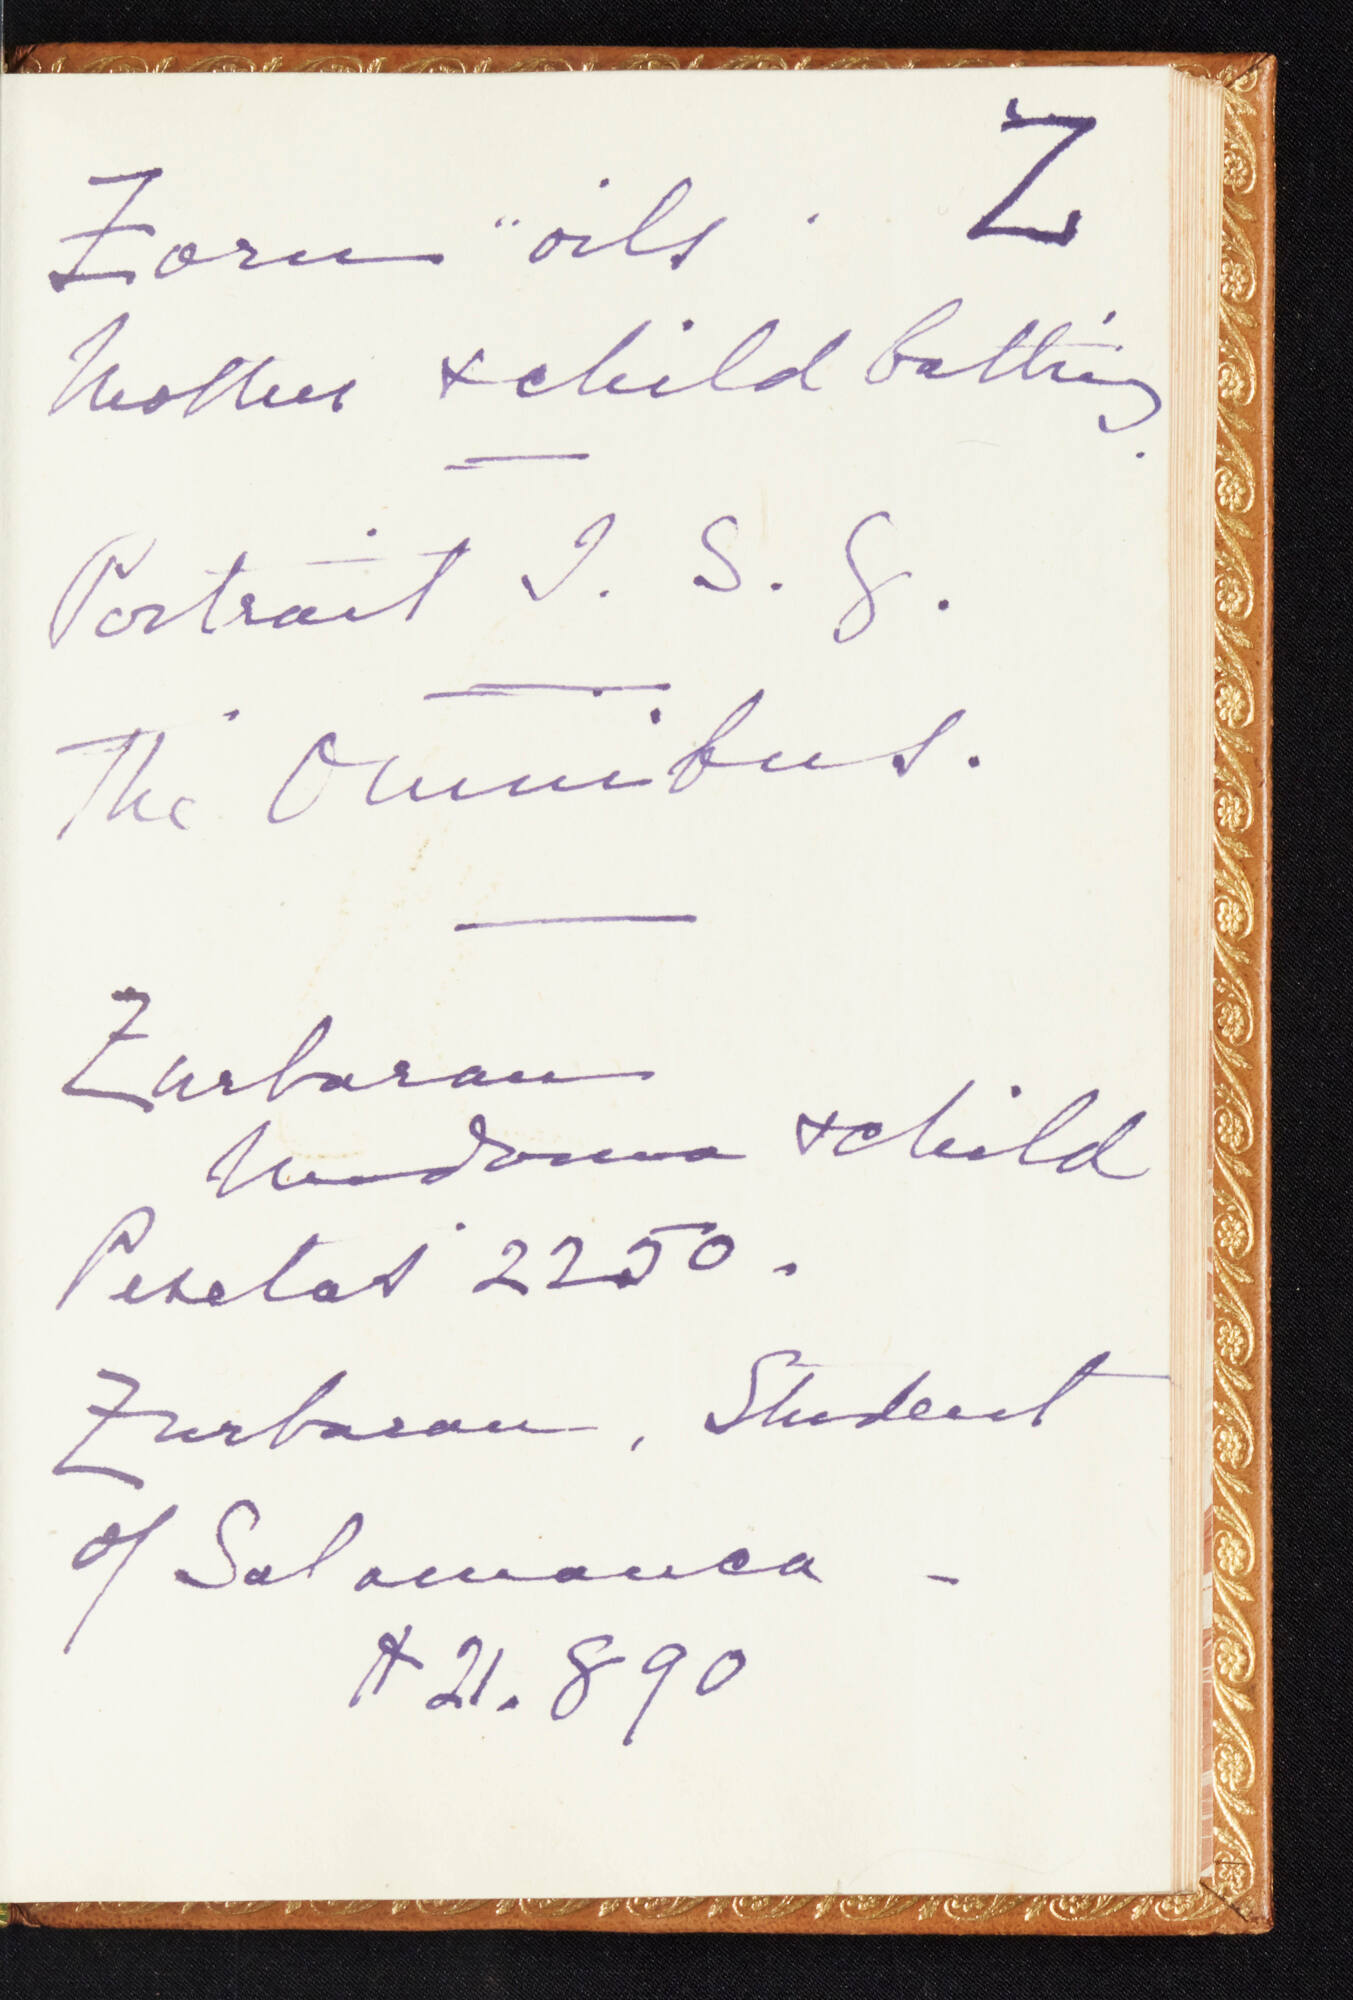 Z
Zorn "oils.
Mother & child bathing.
Portrait I. S. G.
The Omnibus.
Zurbaran
Madonna & child
Pesetas 2250.
Zurbaran, Student
of Salamanca -
21.890